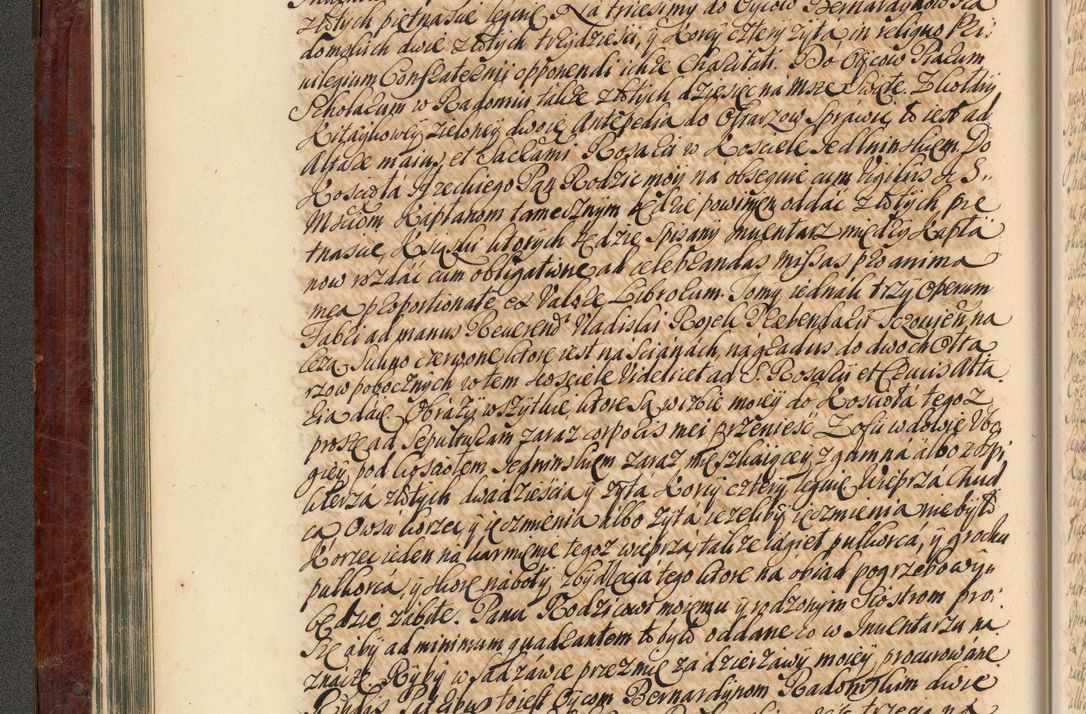 złotych piętnascie leguię Na tricesimy do Oycow Bernardynow Ra
domskich dwie złotych trzydziesci, y Korcy cztery zyta, in religuo Pri
uilegium Confraternii opponendi ichze Charitati. Do Oycow Piarum
Scholarum w Radomiu także złotych dziesięc na Msze Swięte. Z kołdry
Kitaykowey zieloney dwoie Antepedia do Ołtarzow sprawic to iest ad
Altare maius, et Sacrami Rosaly w Kosciele Jedlninskiem. Do
Koscioła Jrzeckiego Pan Rodzic moy na obseguie cum Vigiliis J. S.
Msciom Kapłanom tamecznym będzie powinien oddac złotych pie
tnascie, Ksiąszki ktorych będzie spisany Inwentarz między Kapła
now rozdac cum obligatione ad celebrandas missas pro anima
mea proportionate ex Valore Librorum. Tomy iednak trzy Operum
Fabri ad manus Reuerendi Vladislai Rojek Præbendarii na
cza Sukno czerwone ktore iest na scianach, na gradus do dwoch Ołta
rzow pobocznych w tem kosciele Videlicet ad S. Rosaly et Crucis Alta
ria daię Obrazy wszytkie ktore są w izbie moiey do Koscioła tegoz
proszę ad Sepulturam zaraz corporis mei przeniesc Zofii wdowie Vbo
giey pod kosciołem Jedlninskiem zaraz mieszkaiącey z gumna albo z szpi
klerza złotych dwadziescia y zyta Korcy cztery leguię Wieprza Chud
ca Owsa korzec y ięczmienia albo zyta iezeliby ięczmienia niebyło
Korzec ieden na karmienie tegoz wieprza, także iagieł pułkorca, y grochu
pułkorca, y skorę na boty, z bydlęcia tego ktore na obiad pogrzebowy
będzie zabite. Panu Rodzicowi moiemu y rodzonym Siostrom pro
szę aby ad minimum quadrantem to było oddane co w Inwentarzu na
znaczę Ryby w sadzawce przezmię za dzierzawy moiey procurowane
to iest Oycom Bernardynom Radomskim dwie